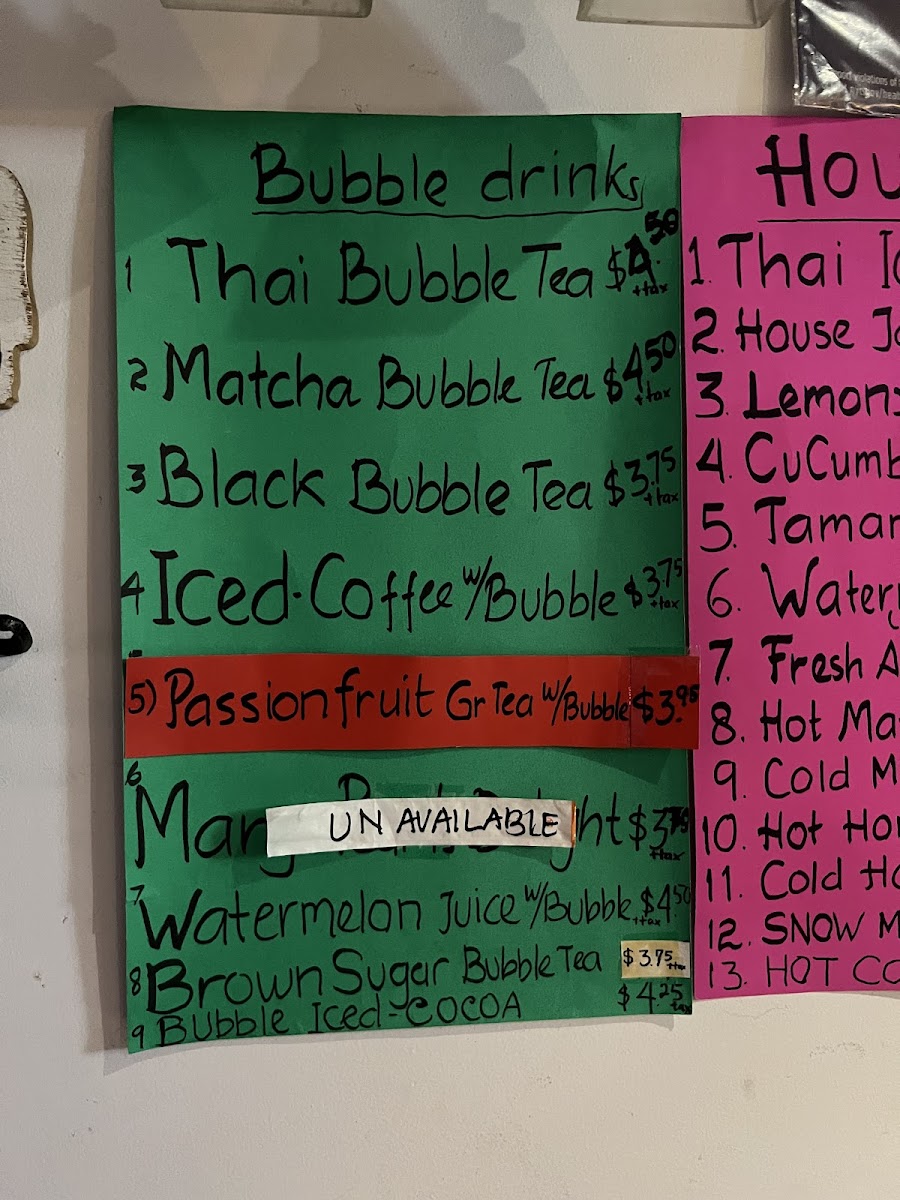 Bubble drinks
1 Thai Bubble Tea $4.50 +tax
2 Matcha Bubble Tea $4.50 +tax
3 Black Bubble Tea $3.75 +tax
4 Iced-Coffee w/Bubble $3.75 +tax
5) Passionfruit Gr Tea w/Bubble $3.95
6
UNAVAILABLE $3.75 +tax
7 Watermelon Juice w/Bubble $4.50 +tax
8 Brown Sugar Bubble Tea $3.75 +tax
9 BUBBLE ICED-COCOA $4.25 tax
1. Thai
2. House
3.
4.
5.
6.
7. Fresh
8. Hot
9. Cold
10. Hot
11. Cold
12. SNOW
13. HOT